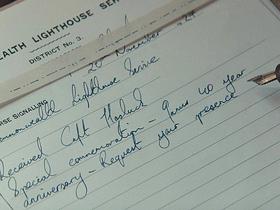 EALTH LIGHTHOUSE SER
DISTRICT No. 3.
20 November
RSE SIGNALLING
ommonwealth Lighthouse Service
Received Capt Hasluck
Special commemoration - 40 year
anniversary - Request your presence